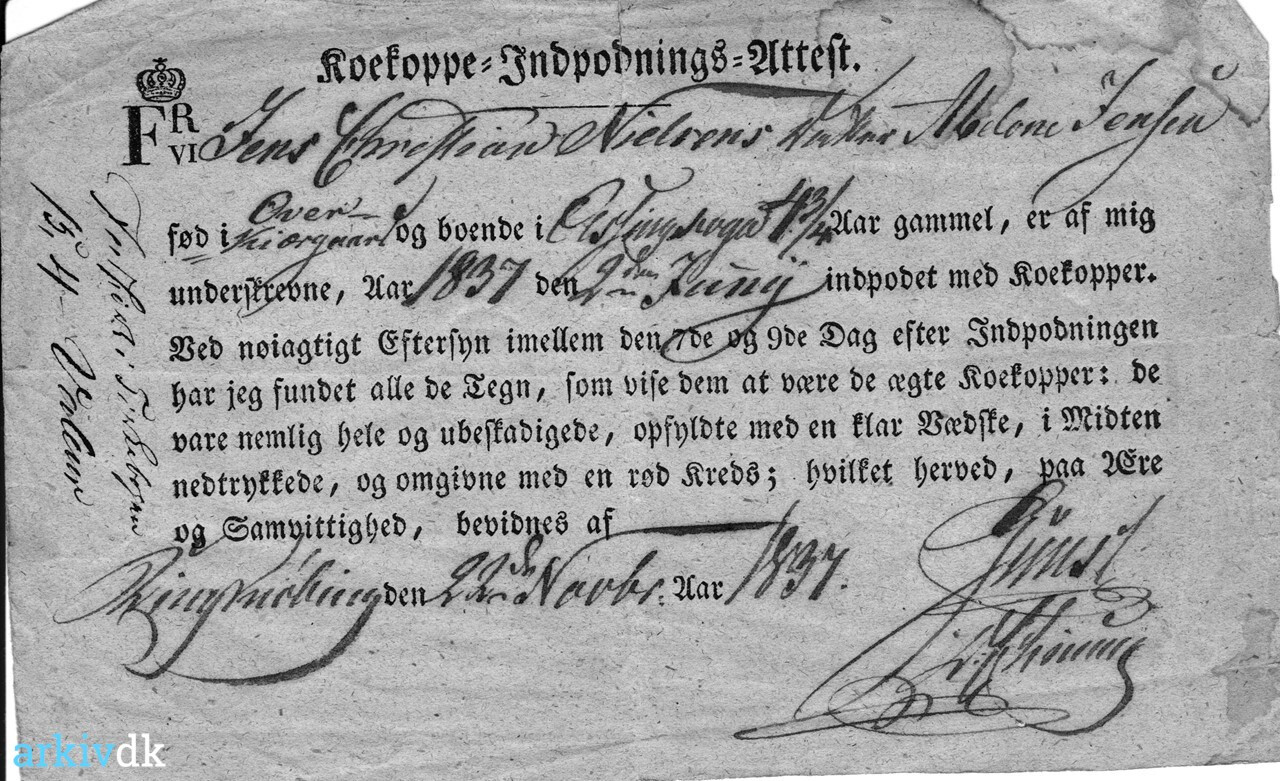 Koekoppe-Indpodnings-Attest.
F R VI
Jens Christian Nielsens Datter Abelone Jensen
fød i Over Kiærgaard og boende i 13/4 Aar gammel, er af mig
underskrevne, Aar 1837 den 2den Junij indpodet med Koekopper.
Ved nøiagtigt Eftersyn imellem den 7de og 9de Dag efter Indpodningen
har jeg fundet alle de Tegn, som vise dem at være de ægte Koekopper: de
vare nemlig hele og ubeskadigede, opfyldte med en klar Vædske, i Midten
nedtrykkede, og omgivne med en rød Kreds; hvilket herved, paa Ære
og Samvittighed, bevidnes af
Ringkiøbing den 22de Novbr. Aar 1837.
arkivdk